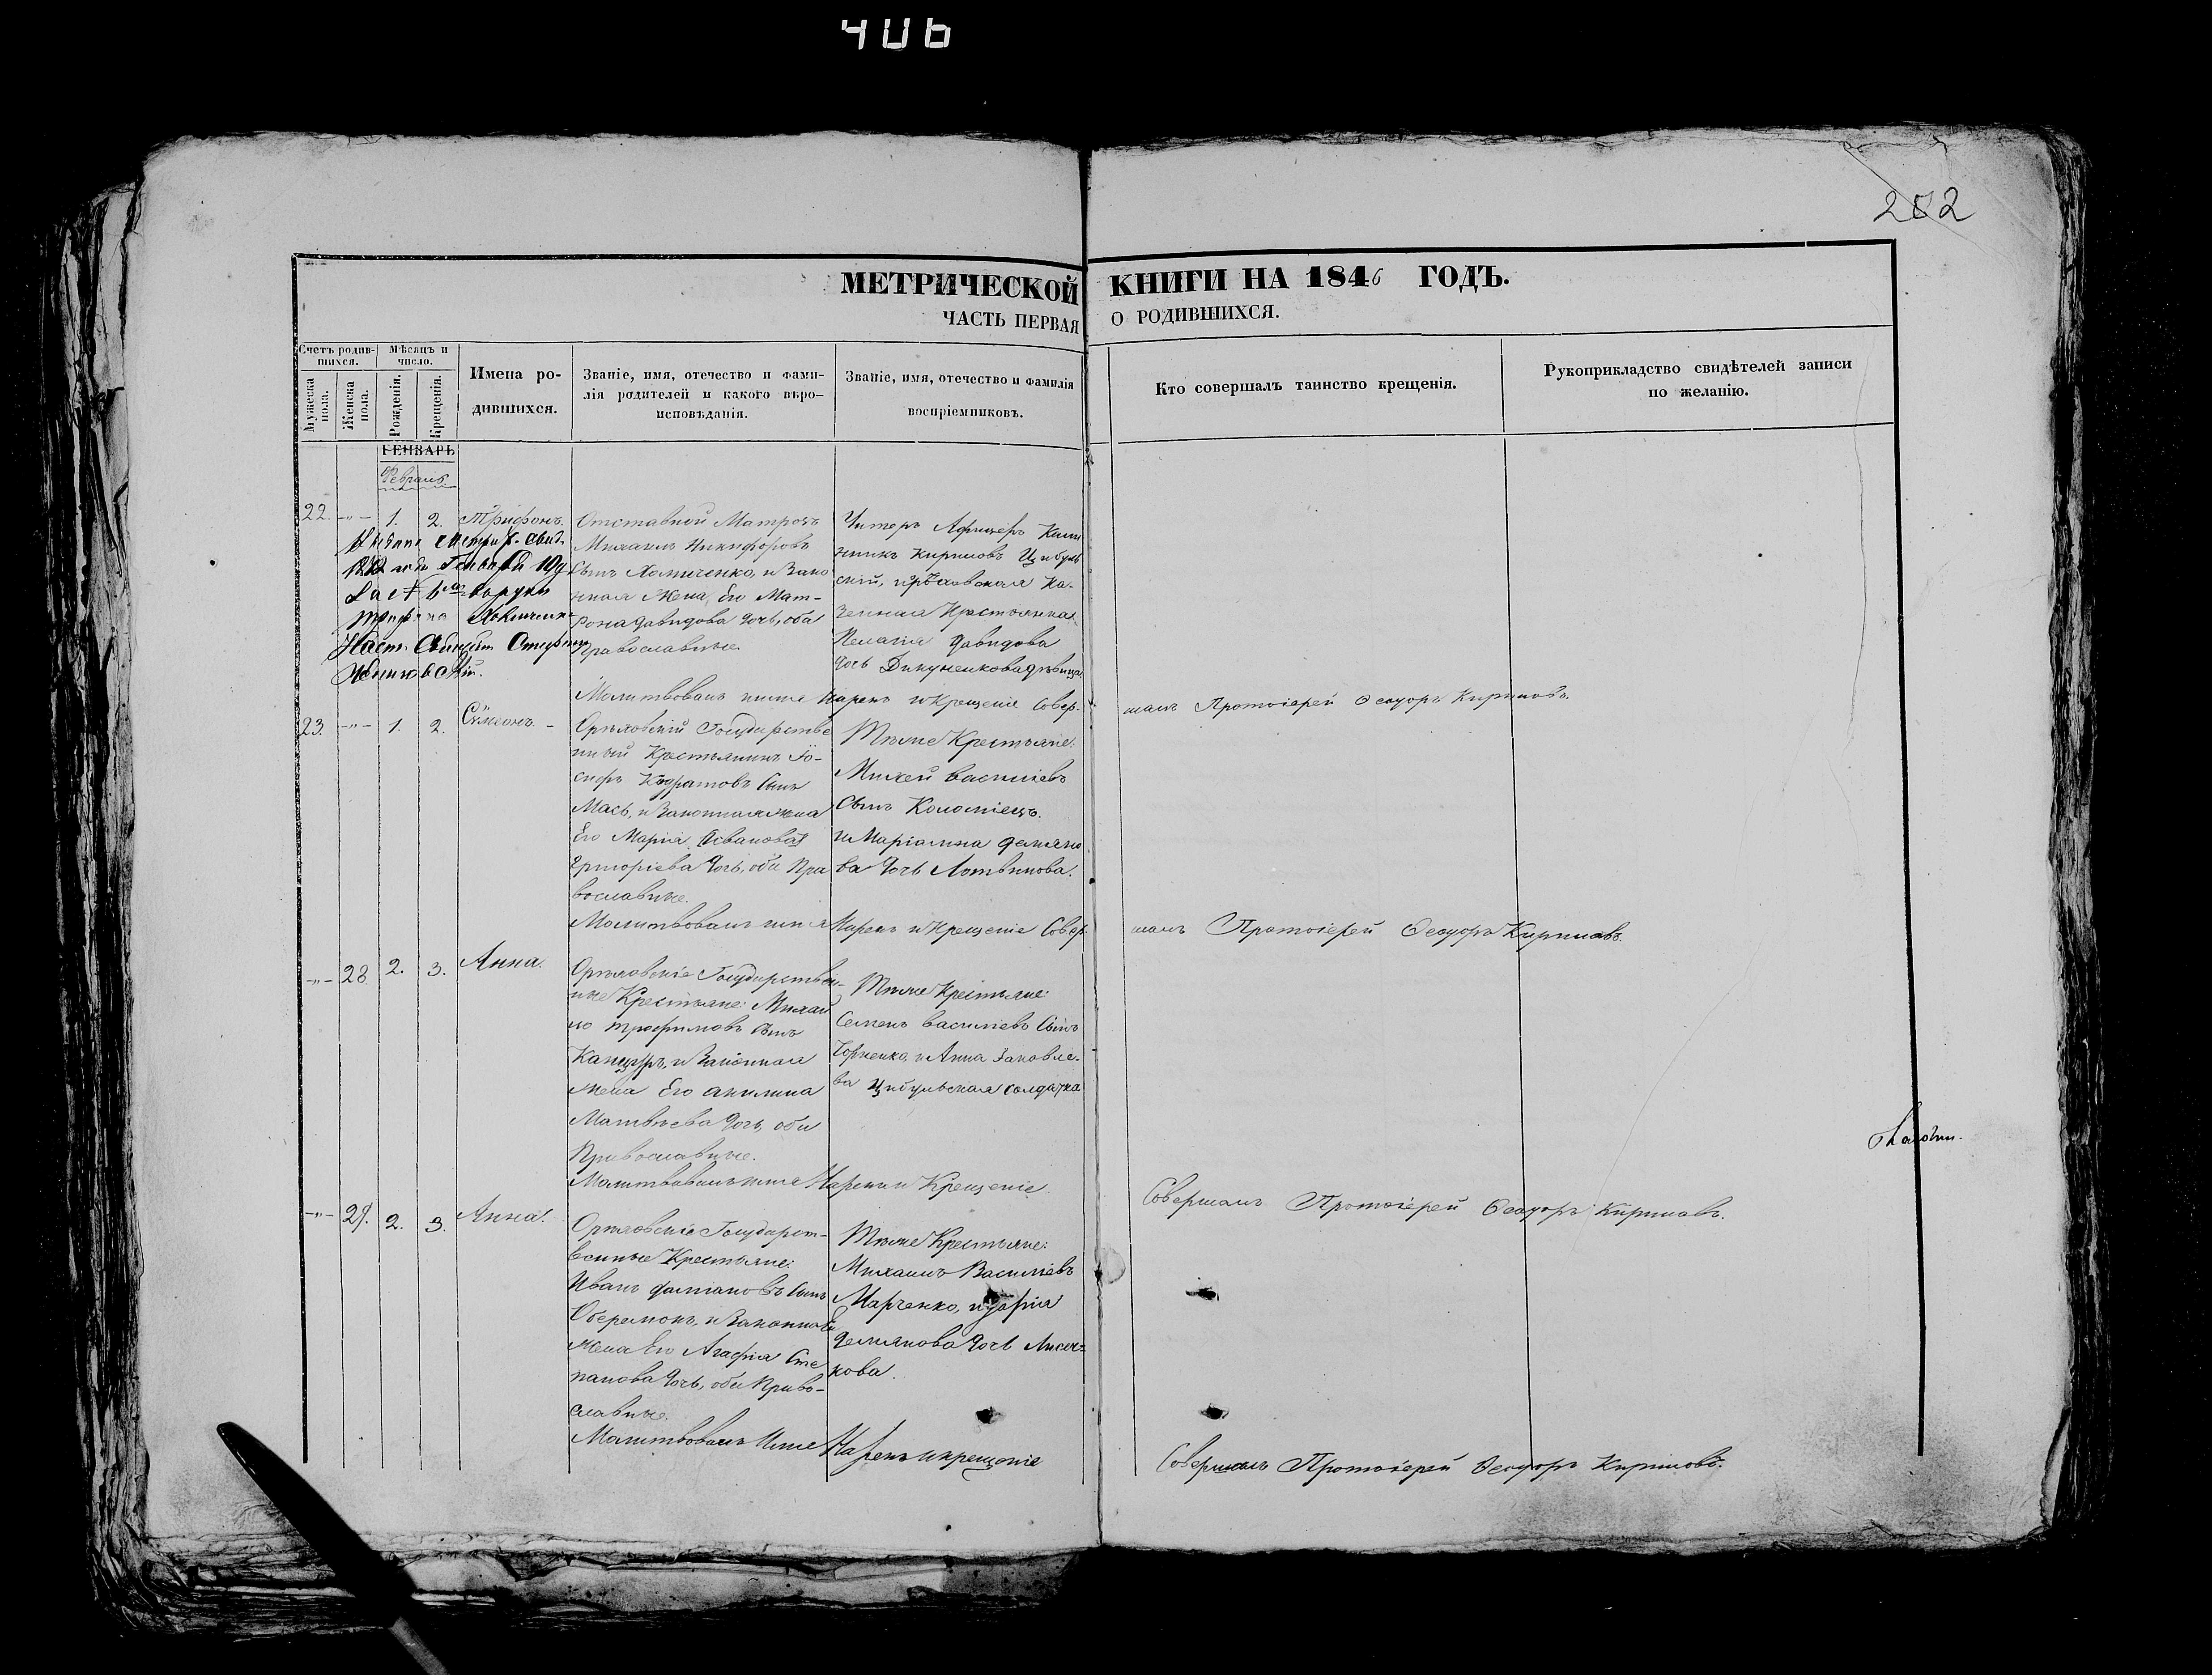 406
202
МЕТРИЧЕСКОЙ КНИГИ НА 1846 ГОДЪ.
ЧАСТЬ ПЕРВАЯ О РОДИВШИХСЯ.
Счетъ родившихся.
Мужеска пола.
Женска пола.
Мѣсяцъ и число.
Рожденія.
Крещенія.
Имена родившихся.
Званіе, имя, отечество и фамилія родителей и какого вѣроисповѣданія.
Званіе, имя, отечество и фамилія воспріемниковъ.
Кто совершалъ таинство крещенія.
Рукоприкладство свидѣтелей записи по желанію.
ГЕНВАРЬ
Февраль
22. -"- 1. 2. Трифонъ.
Отставной Матрозъ
Михаилъ Никифоровъ
Сынъ и Зако
нная Жена, Его Мат-
рона Давидова дочь, оба
Православные.
Унтеръ Афицеръ
Кириловъ Цибуль
скій,
зенная Крестьянка
Пелагія Давидова
дочь дѣвица
Молитвовалъ имя Нарекъ и Крещеніе Совер-
шалъ Протоіерей Феодоръ Кириловъ.
23. -"- 1. 2. Сѵмеонъ. -
Орѣловскій Государстве
нный Крестьянинъ Іо-
сифъ Кодратовъ Сынъ
Мась, и Законная жена
Его Марія
Григоріева дочь, оба Пра
вославные.
Тѣ же Крестьяне:
Михей Василіевъ
Сынъ Коломіецъ.
и Маріамна Демяно
ва дочь Литвинова.
Молитвовалъ имя Нарекъ и Крещеніе Совер-
шалъ Протоіерей Феодоръ Кириловъ.
-"- 28 2. 3. Анна.
Орѣловскіе Государствен-
ные Крестьяне: Михаи
ло Трофимовъ Сынъ
Канцуръ, и Законная
жена Его Акилина
Матвѣева дочь, оба
Православные.
Тѣ же Крестьяне:
Семенъ Василіевъ Сынъ
Чорненко, и Анна Заковле-
ва Цибульская солдатка
Молитвовалъ имя Нарекъ и Крещеніе
Совершалъ Протоіерей Феодоръ Кириловъ.
-"- 29. 2. 3. Анна.
Орѣловскіе Государст-
венные Крестьяне:
Иванъ Даміановъ Сынъ
Оберемокъ, и Законная
жена Его Агафія Сте
панова дочь, оба Право-
славные.
Тѣ же Крестьяне:
Михаилъ Василіевъ
Марченко, и Дарія
Демянова дочь Лисен-
кова.
Молитвовалъ Имя Нарекъ и крещеніе
Совершалъ Протоіерей Феодоръ Кириловъ.